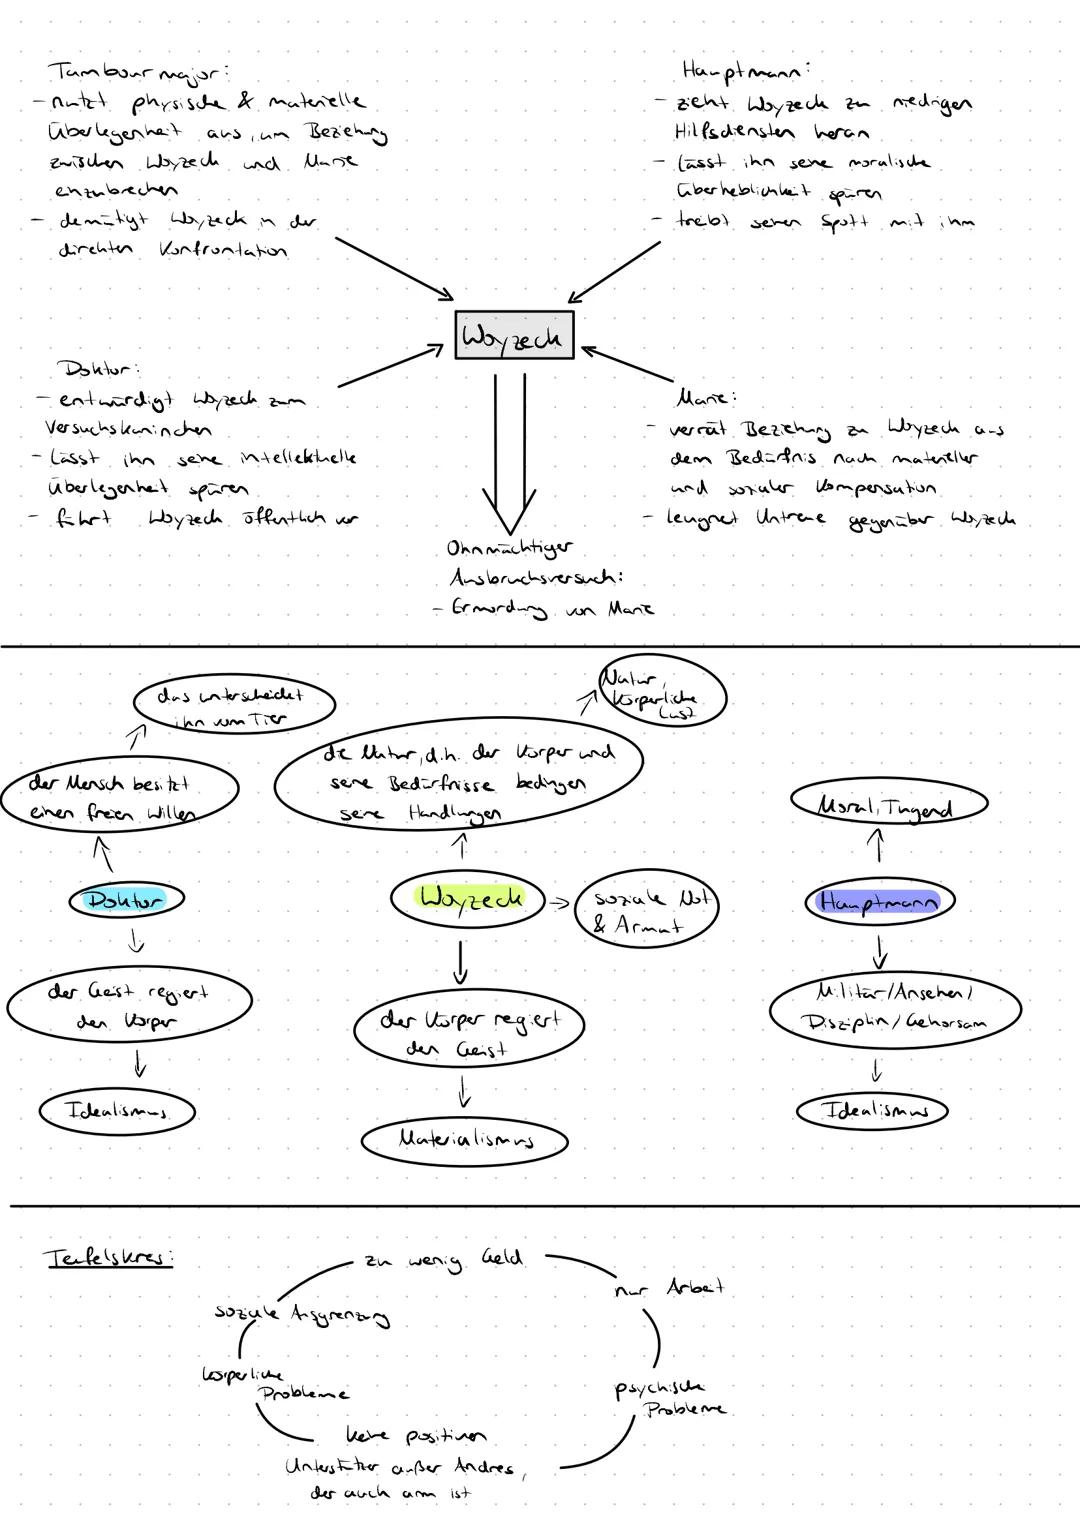 Tambourmajor:
- nutzt physische & materielle
Überlegenheit aus, um Beziehung
zwischen Woyzeck und Marie
einzubrechen
- demütigt Woyzeck in der
direkten Konfrontation
Hauptmann:
- zieht Woyzeck zu niedrigen
Hilfsdiensten heran
- lässt ihn seine moralische
Überheblichkeit spüren
- treibt seinen Spott mit ihm
Woyzeck
Doktor:
- entwürdigt Woyzeck zum
Versuchskaninchen
- lässt ihn seine intellektuelle
Überlegenheit spüren
- führt Woyzeck öffentlich vor
Marie:
- verrät Beziehung zu Woyzeck aus
dem Bedürfnis nach materieller
und sozialer Kompensation
- leugnet Untreue gegenüber Woyzeck
Ohnmächtiger
Ausbruchsversuch:
- Ermordung von Marie
das unterscheidet
ihn vom Tier
der Mensch besitzt
einen freien Willen
Doktor
der Geist regiert
den Körper
Idealismus
Natur,
körperliche
Lust
die Natur, d.h. der Körper und
seine Bedürfnisse bedingen
seine Handlungen
Woyzeck
soziale Not
& Armut
der Körper regiert
den Geist
Materialismus
Moral, Tugend
Hauptmann
Militär/Ansehen/
Disziplin/Gehorsam
Idealismus
Teufelskreis:
zu wenig Geld
nur Arbeit
psychische
Probleme
keine positiven
Unterstützer außer Andres,
der auch arm ist
körperliche
Probleme
soziale Ausgrenzung